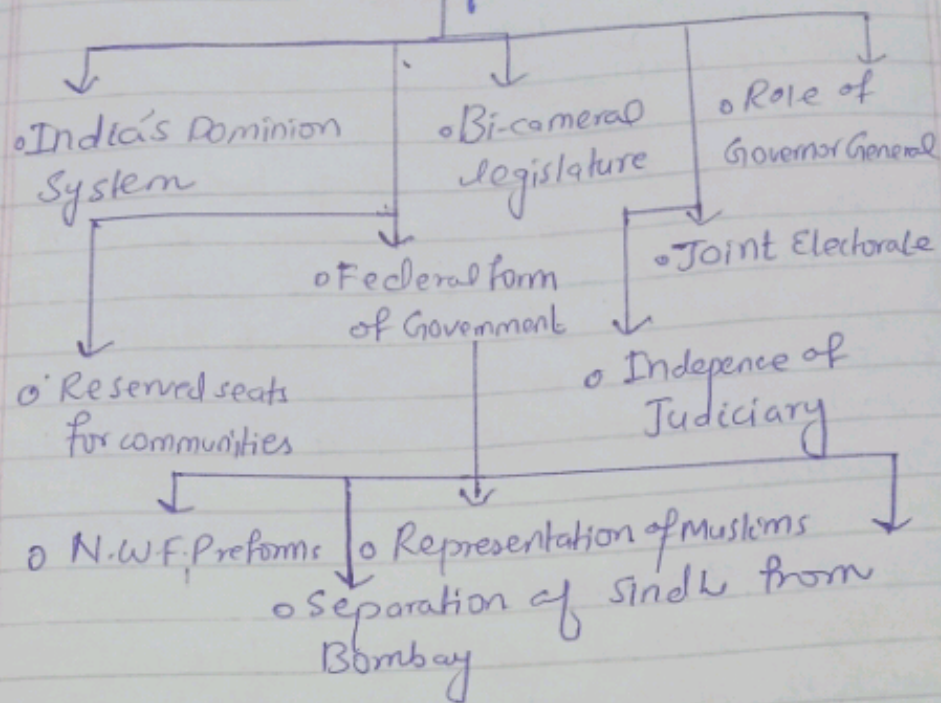 o India's Dominion
System
o Bi-cameral
legislature
o Role of
Governor General
o Federal form
of Government
o Joint Electorate
o Reserved seats
for communities
o Indepence of
Judiciary
o N.W.F.P reforms
o Representation of Muslims
o Separation of Sindh from
Bombay